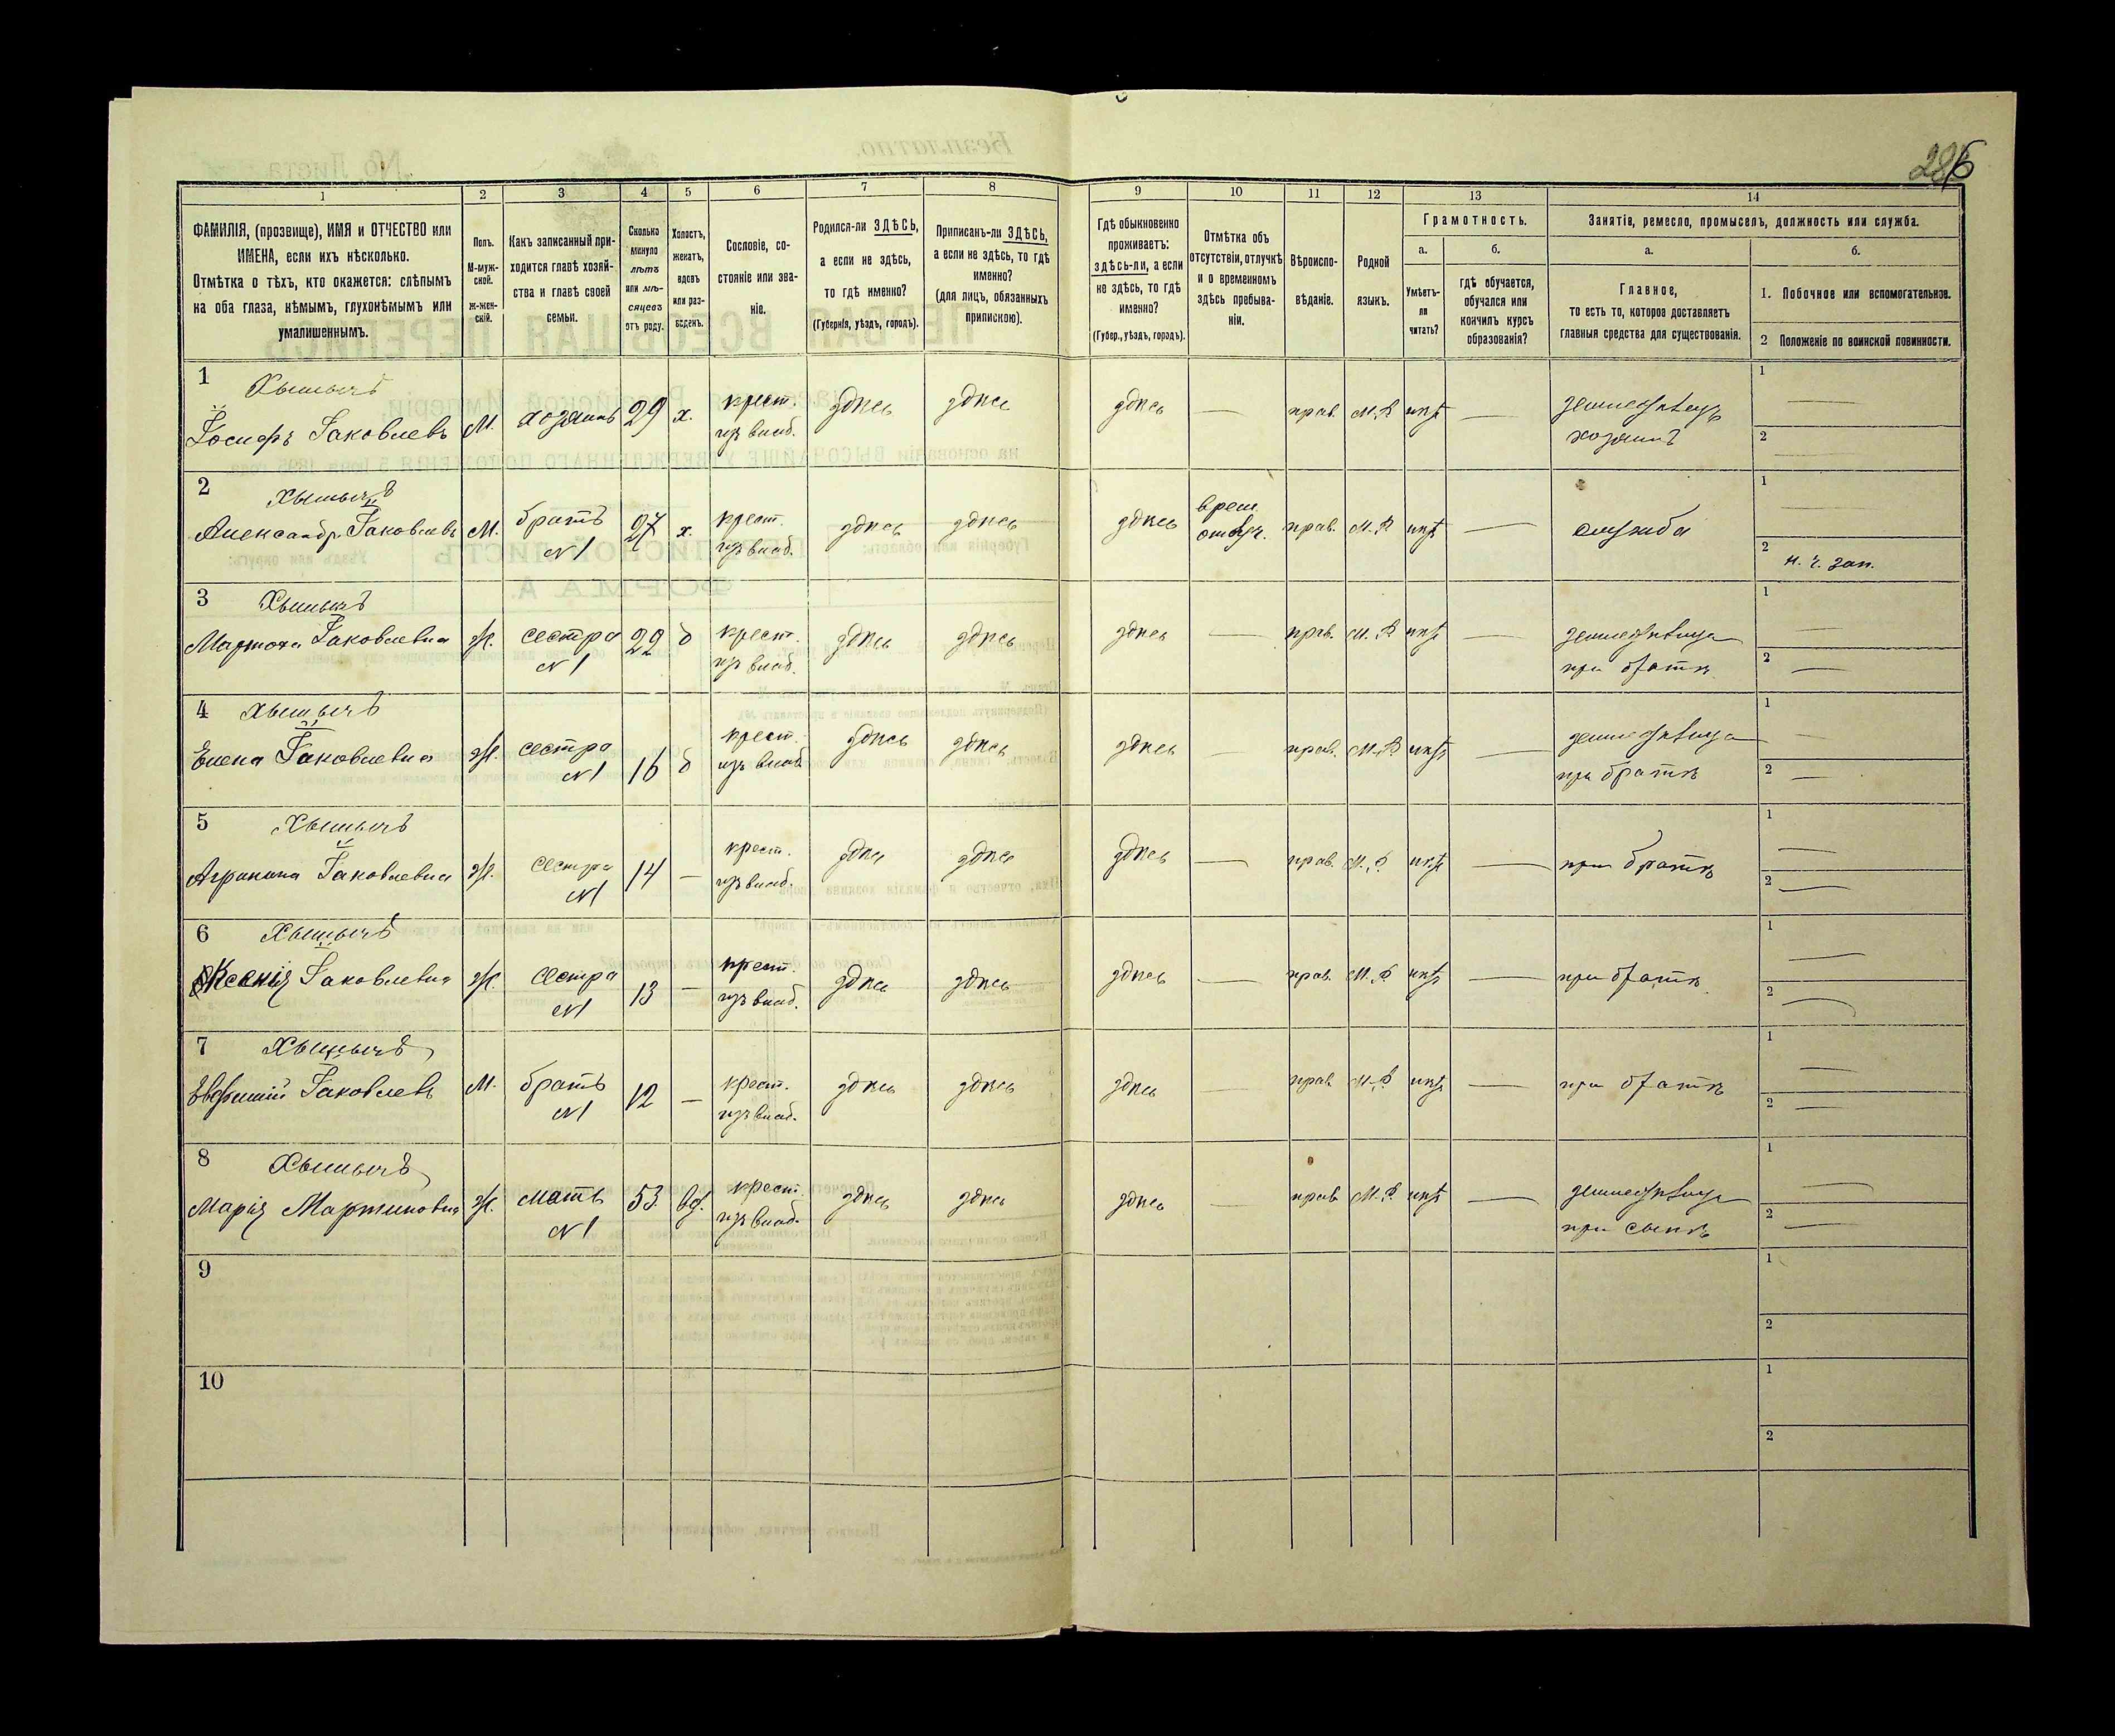 285
1 2 3 4 5 6 7 8 9 10 11 12 13 14
ФАМИЛІЯ, (прозвище), ИМЯ и ОТЧЕСТВО или
ИМЕНА, если ихъ нѣсколько.
Отмѣтка о тѣхъ, кто окажется: слѣпымъ
на оба глаза, нѣмымъ, глухонѣмымъ или
умалишеннымъ.
Полъ.
М-муж-
ской.
ж-жен-
скій.
Какъ записанный при-
ходится главѣ хозяй-
ства и главѣ своей
семьи.
Сколько
минуло
лѣтъ
или мѣ-
сяцевъ
отъ роду.
Холостъ,
женатъ,
вдовъ
или раз-
веденъ.
Сословіе, со-
стояніе или зва-
ніе.
Родился-ли ЗДѢСЬ,
а если не здѣсь,
то гдѣ именно?
(Губернія, уѣздъ, городъ).
Приписанъ-ли ЗДѢСЬ,
а если не здѣсь, то гдѣ
именно?
(для лицъ, обязанныхъ
припискою).
Гдѣ обыкновенно
проживаетъ:
здѣсь-ли, а если
не здѣсь, то гдѣ
именно?
(Губер., уѣздъ, городъ).
Отмѣтка объ
отсутствіи, отлучкѣ
и о временномъ
здѣсь пребыва-
ніи.
Вѣроиспо-
вѣданіе.
Родной
языкъ.
Грамотность.
а.
Умѣетъ-
ли
читать?
б.
гдѣ обучается,
обучался или
кончилъ курсъ
образованія?
Занятіе, ремесло, промыселъ, должность или служба.
а.
Главное,
то есть то, которое доставляетъ
главныя средства для существованія.
б.
1. Побочное или вспомогательное.
2 Положеніе по воинской повинности.
1 Хышычъ
Іосифъ Іаковлевъ М. хозяинъ 29 х. крест. изъ влад. здѣсь здѣсь здѣсь — прав. М.Р. нѣтъ — земледѣлецъ хозяинъ 1 — 2 —
2 Хышычъ
Александръ Іаковлевъ М. братъ N1 27 х. крест. изъ влад. здѣсь здѣсь здѣсь врем. отлуч. прав. М.Р. нѣтъ — служба 1 — 2 н. ч. зап.
3 Хышычъ
Марѳа Іаковлевна ж. сестра N1 22 д крест. изъ влад. здѣсь здѣсь здѣсь — прав. М.Р. нѣтъ — земледѣлица при братѣ 1 — 2 —
4 Хышычъ
Елена Іаковлевна ж. сестра N1 16 д крест. изъ влад. здѣсь здѣсь здѣсь — прав. М.Р. нѣтъ — земледѣлица при братѣ 1 — 2 —
5 Хышычъ
Агрипина Іаковлевна ж. сестра N1 14 — крест. изъ влад. здѣсь здѣсь здѣсь — прав. М.Р. нѣтъ — при братѣ 1 — 2 —
6 Хышычъ
Ксенія Іаковлевна ж. сестра N1 13 — крест. изъ влад. здѣсь здѣсь здѣсь — прав. М.Р. нѣтъ — при братѣ 1 — 2 —
7 Хышычъ
Евфимій Іаковлевъ М. братъ N1 12 — крест. изъ влад. здѣсь здѣсь здѣсь — прав. М.Р. нѣтъ — при братѣ 1 — 2 —
8 Хышычъ
Марія Мартиновна ж. мать N1 53. вд. крест. изъ влад. здѣсь здѣсь здѣсь — прав. М.Р. нѣтъ — земледѣлица при сынѣ 1 — 2 —
9 1 2
10 1 2